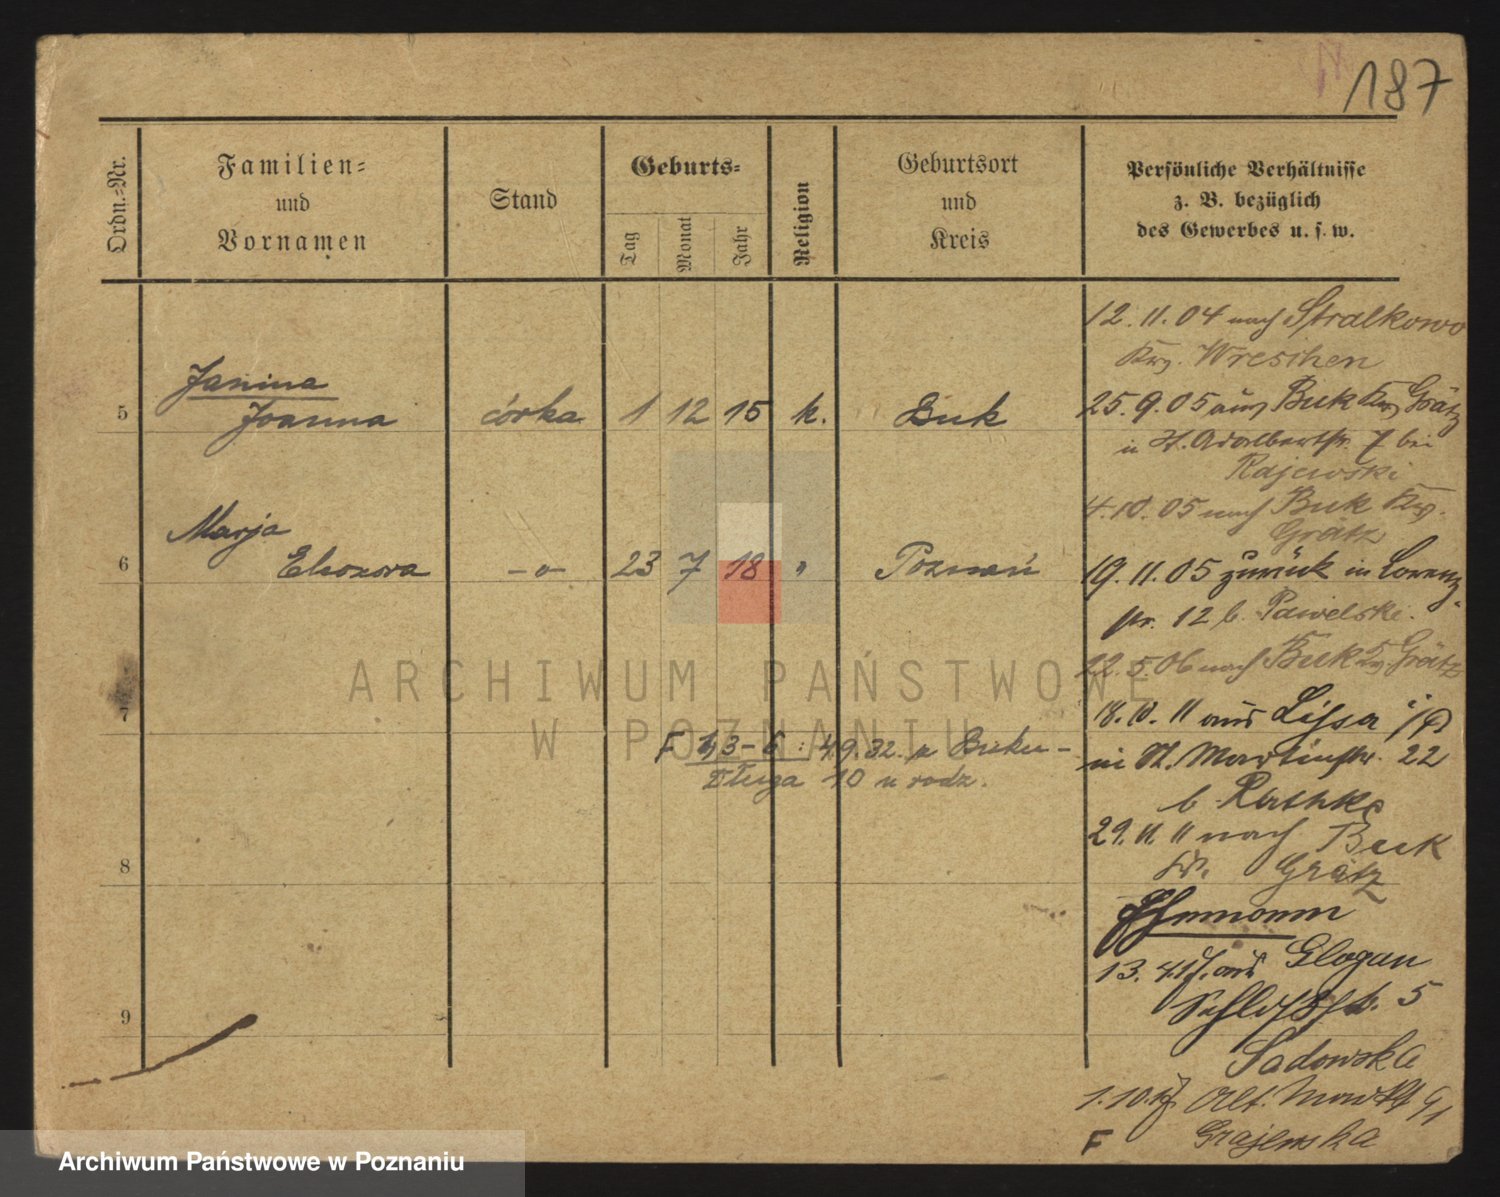 187
Ordn.=Nr.
Familien=
und
Vornamen
Stand
Geburts=
Tag
Monat
Jahr
Religion
Geburtsort
und
Kreis
Persönliche Verhältnisse
z. B. bezüglich
des Gewerbes u. s. w.
5
Janina
Joanna
córka
1 12 15 k. Buk
6
Marja
Eleonora
-o-
23 7 18 " Poznań
8
9
F 1, 3-6: 4.9.32. Buku -
Długa 10 u rodz.
12. 11. 04 nach Stralkowo
Wreschen
25. 9. 05 aus Buk Grätz
Adalbertstr. 7 bei
Rajewski
4. 10. 05 nach Buk
Grätz
19. 11. 05 zurück in Lorenz
str. 12 b. Pawelski.
22. 5. 06 nach Buk Grätz
18. 10. 11 aus Lissa i/P
in St. Martinstr. 22
b. Rathke
29. 11. 11 nach Buk
Kr. Grätz
Ehemann
13. 4. 17. aus Glogau
5
Sadowska
1. 10. 17 Alt. Markt 91
F Grajewska
ARCHIWUM PAŃSTWOWE
W POZNANIU
Archiwum Państwowe w Poznaniu